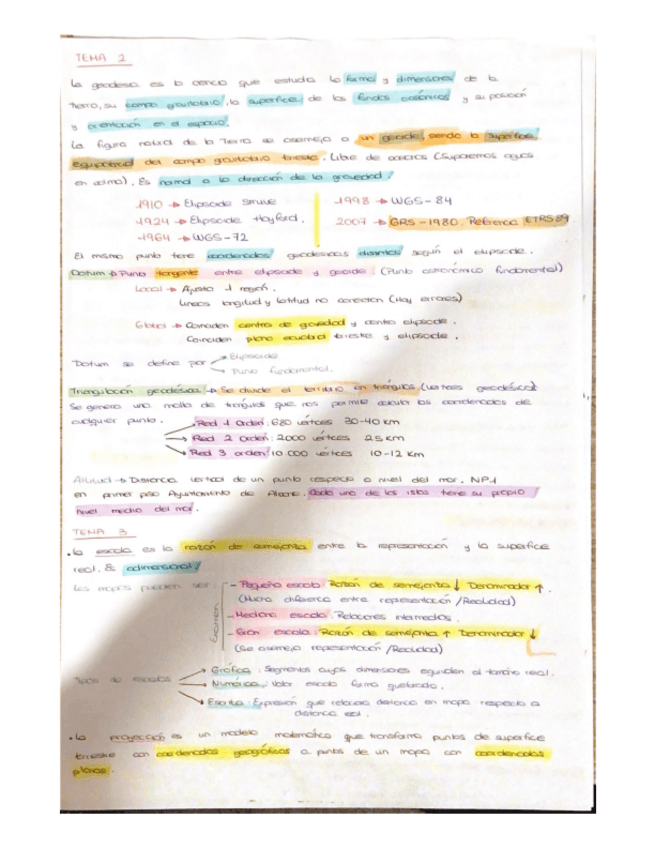 TEMA 2
La geodesia es la ciencia que estudia la forma y dimensiones de la
Tierra, su campo gravitatorio, la superficie de los fondos oceánicos y su posición
y orientación en el espacio.
La figura natural de la Tierra se asemeja a un geoide, siendo la superficie
equipotencial del campo gravitatorio terrestre. Libre de océanos (Suponemos aguas
en calma). Es normal a la dirección de la gravedad.
1910 → Elipsoide Struve
1924 → Elipsoide Hayford.
1964 → WGS-72
1998 → WGS-84
2007 → GRS-1980. Referencia ETRS89
El mismo punto tiene coordenadas geodésicas distintas según el elipsoide.
Datum → Punto tangente entre elipsoide y geoide. (Punto astronómico fundamental)
Local → Ajusta 1 región.
Líneas longitud y latitud no conectan (Hay errores)
Global → Coinciden centro de gravedad y centro elipsoide.
Coinciden plano ecuatorial terrestre y elipsoide.
Datum se define por → Elipsoide
→ Punto fundamental.
Triangulación geodésica → Se divide el territorio en triángulos (vértices geodésicos)
Se genera una malla de triángulos que nos permite calcular las coordenadas de
cualquier punto.
→ Red 1 Orden: 680 vértices 30-40 km
→ Red 2 Orden: 2000 vértices 25 km
→ Red 3 orden: 10.000 vértices 10-12 km
Altitud → Distancia vertical de un punto respecto a nivel del mar. NP1
en primer piso Ayuntamiento de Alicante. Cada una de las islas tiene su propio
nivel medio del mar.
TEMA 3
• La escala es la razón de semejanza entre la representación y la superficie
real. Es adimensional
Los mapas pueden ser:
Examen
- Pequeña escala: Razón de semejanza ↓ Denominador ↑.
(Mucha diferencia entre representación/Realidad)
- Mediana escala: Relaciones intermedias.
- Gran escala: Razón de semejanza ↑ Denominador ↓
(Se asemeja representación/Realidad)
Tipos de escalas
→ Gráfica: Segmentos cuyas dimensiones equivalen al tamaño real.
→ Numérica: Valor escala forma quebrado.
→ Escrita: Expresión que relaciona distancia en mapa respecto a
distancia real.
• La proyección es un modelo matemático que transforma puntos de superficie
terrestre con coordenadas geográficas a puntos de un mapa con coordenadas
planas.